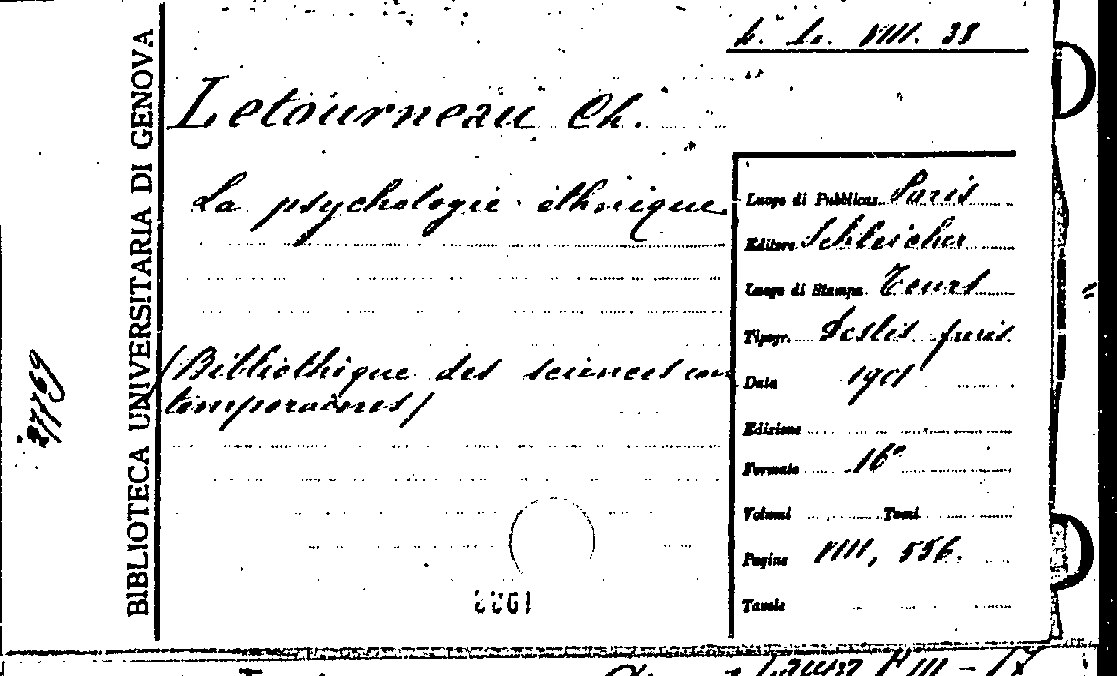 VIII. 38
Letourneau Ch.
La psychologie ethnique
(Bibliothique des sciences con
temporaines)
Luogo di Pubblicaz. Paris
Editore Schleicher
Luogo di Stampa Tours
Tipogr. Deslis frères
Data 1901
Edizione
Formato 16°
Volumi Tomi
Pagine VIII, 556.
Tavole
BIBLIOTECA UNIVERSITARIA DI GENOVA
27769
VIII - 17